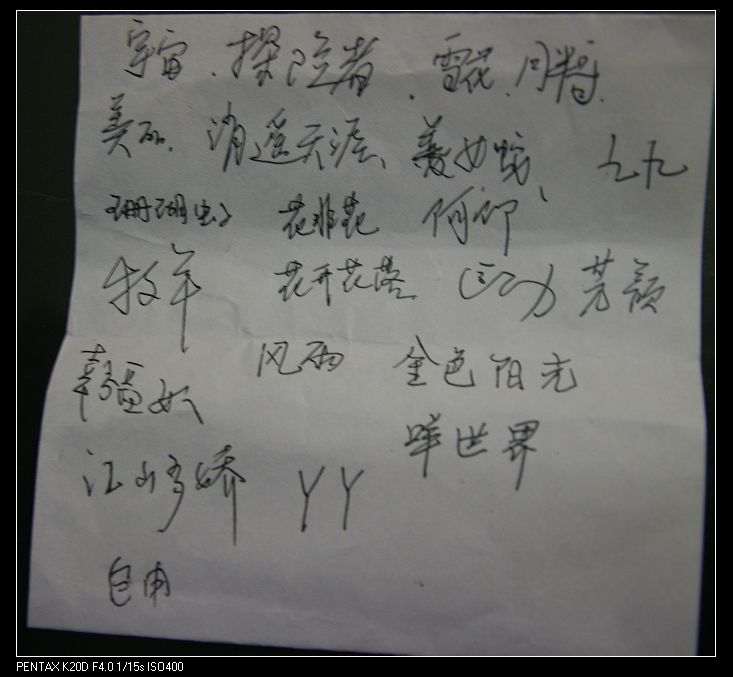 宇宙、探险者、雪花、同将、
美丽、逍遥天涯、美女蛇、九九
珊瑚虫、花非花 何仰
牧羊 花开花落 芳颜
风雨 金色阳光
哗世界
江山多娇 YY
自由
PENTAX K20D F4.0 1/15s ISO400